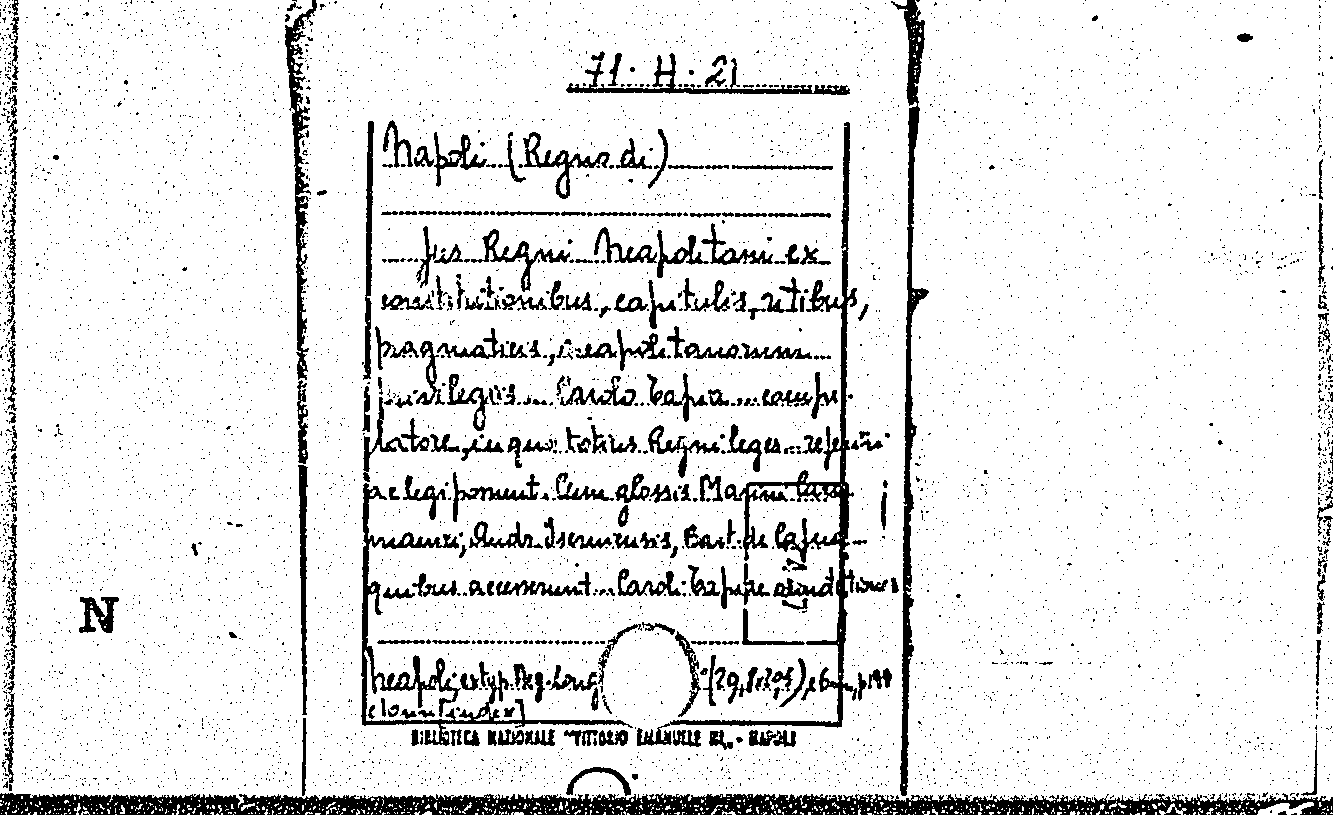 71 · H · 21
Napoli (Regno di)
Jus Regni Neapolitani ex
constitutionibus, capitulis, ritibus,
pragmaticis, neapolitanorum
privilegiis... Carolo Tapia... compi-
latore, in quo totius Regni leges...
ac legi ponunt. Cum glossis Marini Cara-
manici, Andr. Iserniensis, Bart. de Capua...
quibus accesserunt... Caroli Tapiae
Neapoli, ex typ. Aeg. Long
[index]
BIBLIOTECA NAZIONALE "VITTORIO EMANUELE III" - NAPOLI
N